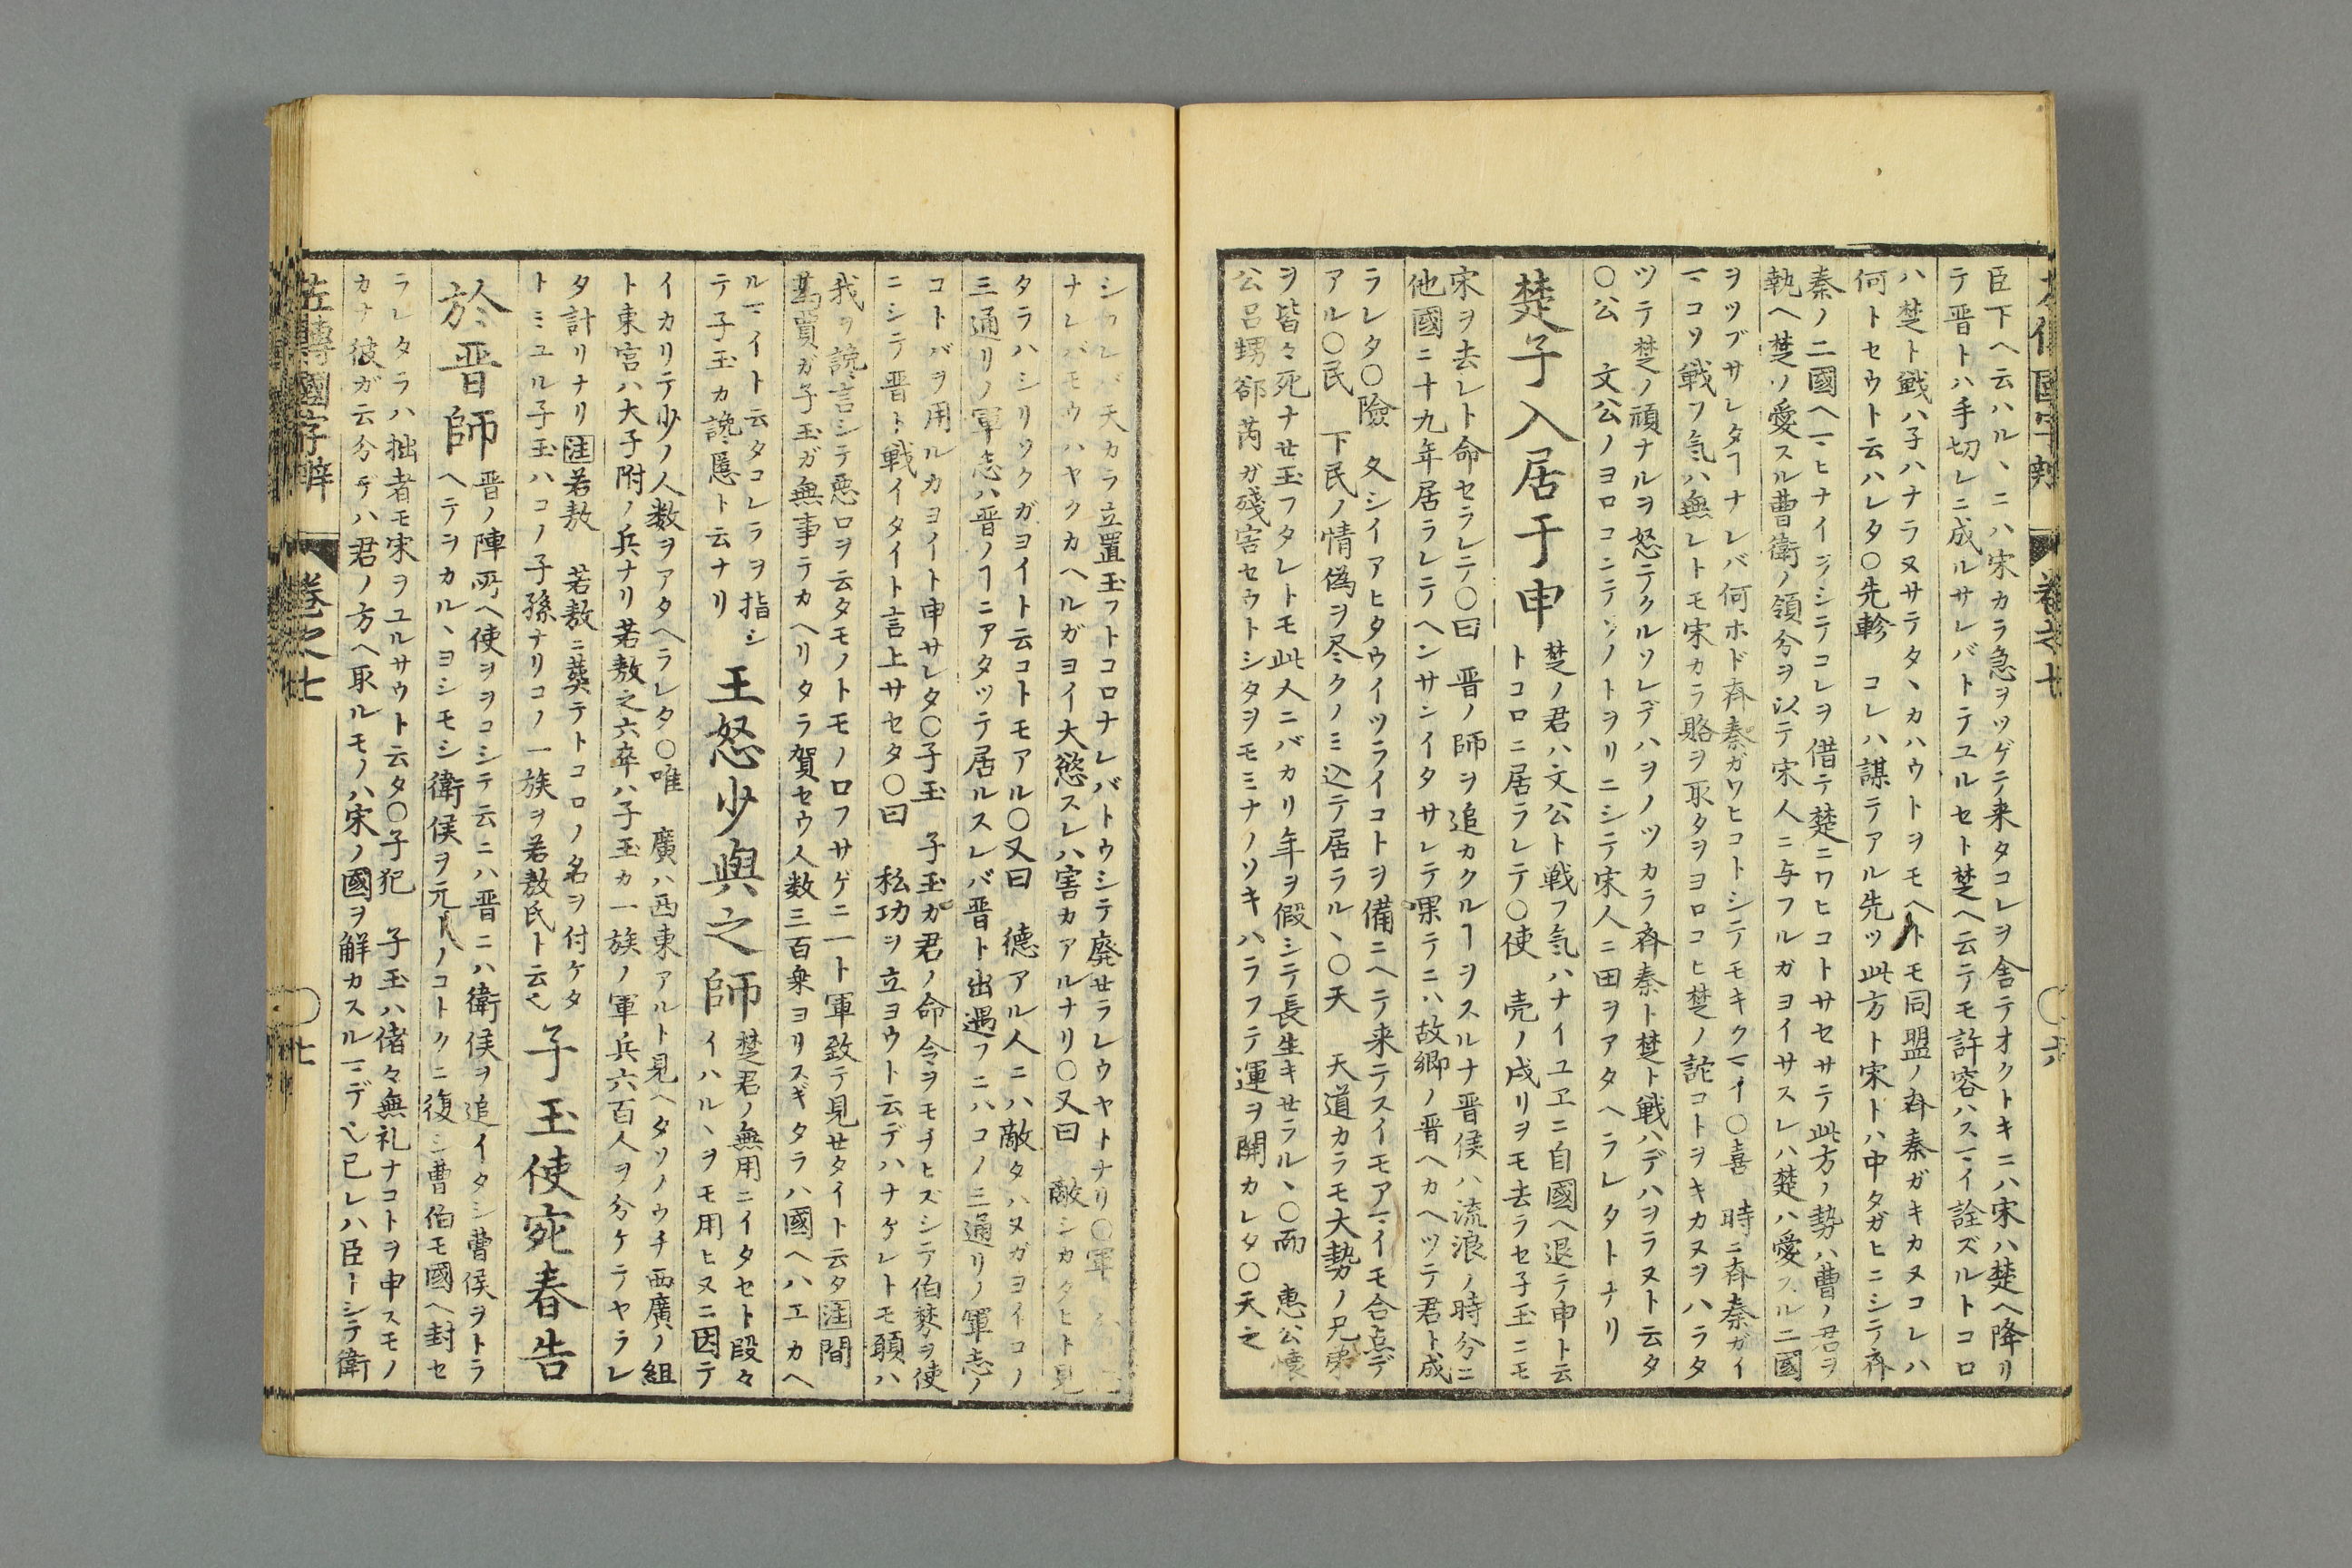 臣下ヘ云ハル、ニハ宋カラ急ヲツゲテ来タコレヲ舎テオクトキニハ宋ハ楚ヘ降リ
テ晋トハ手切レニ成ルサレバトテユルセト楚ヘ云テモ許容ハスマイ詮ズルトコロ
ハ楚ト戦ハ子ハナラヌサテタヽカハウトヲモヘトモ同盟ノ斉秦ガキカヌコレハ
何トセウト云ハレタ〇先軫 コレハ謀テアル先ツ此方ト宋トハ中タガヒニシテ斉
秦ノ二國ヘマヒナイヅシテコレヲ借テ楚ニワヒコトサセサテ此方ノ勢ハ曹ノ君ヲ
執ヘ楚ソ愛スル曹衛ノ領分ヲ以テ宋人ニ与フルガヨイサスレハ楚ハ愛スル二國
ヲツブサレタヿナレバ何ホド斉秦ガワヒコトシテモキクマイ〇喜 時ニ斉秦ガイ
マコソ戦フ気ハ無レトモ宋カラ賂ヲ取タヲヨロコヒ楚ノ詫コトヲキカヌヲハラタ
ツテ楚ノ頑ナルヲ怒テクルソレデハヲノツカラ斉秦ト楚ト戦ハデハヲラヌト云タ
〇公 文公ノヨロコンテソノトヲリニシテ宋人ニ田ヲアタヘラレタトナリ
楚子入居于申
楚ノ君ハ文公ト戦フ気ハナイユヱニ自國ヘ退テ申ト云
トコロニ居ラレテ〇使 売ノ戌リヲモ去ラセ子玉ニモ
宋ヲ去レト命セラレテ〇曰 晋ノ師ヲ追カクルヿヲスルナ晋侯ハ流浪ノ時分ニ
他國ニ十九年居ラレテヘンサンイタサレテ果テニハ故郷ノ晋ヘカヘツテ君ト成
ラレタ〇險 久シイアヒタウイツライコトヲ備ニヘテ来テスイモアマイモ合点デ
アル〇民 下民ノ情偽ヲ尽クノミ込テ居ラル、〇天 天道カラモ大勢ノ兄弟
ヲ皆々死ナセ玉フタレトモ此人ニバカリ年ヲ假シテ長生キセラル、〇而 惠公懐
公呂甥郤芮ガ殘害セウトシタヲモミナノソキハラフテ運ヲ開カレタ〇天之
シカレバ天カラ立置玉フトコロナレバトウシテ廃セラレウヤトナリ〇軍
ナレバモウハヤクカヘルガヨイ大慾スレハ害カアルナリ〇又曰 敵シカタヒト見
タラハシリソクガヨイト云コトモアル〇又曰 德アル人ニハ敵タハヌガヨイコノ
三通リノ軍志ハ晋ノヿニアタツテ居ルスレバ晋ト出遇フニハコノ三通リノ軍志ノ
コトバヲ用ルカヨイト申サレタ〇子玉 子玉ガ君ノ命令ヲモチヒズシテ伯棼ヲ使
ニシテ晋ト戦イタイト言上サセタ〇曰 私功ヲ立ヨウト云デハナケレトモ願ハ
我ヲ讒言シテ悪口ヲ云タモノトモノ口フサゲニ一ト軍致テ見セタイト云タ注間
蔿賈ガ子玉ガ無事テカヘリタラ賀セウ人数三百乗ヨリスギタラハ國ヘハエカヘ
ルマイト云タコレラヲ指シ
テ子玉カ讒慝ト云ナリ
王怒少與之師
楚君ノ無用ニイタセト段々
イハル、ヲモ用ヒヌニ因テ
イカリテ少ノ人数ヲアタヘラレタ〇唯 廣ハ西東アルト見ヘタソノウチ西廣ノ組
ト東宮ハ大子附ノ兵ナリ若敖之六卒ハ子玉カ一族ノ軍兵六百人ヲ分ケテヤラレ
タ計リナリ注若敖 若敖ニ葬テトコロノ名ヲ付ケタ
トミユル子玉ハコノ子孫ナリコノ一族ヲ若敖氏ト云也
子玉使宛春告
於晋師
晋ノ陣所ヘ使ヲヲコシテ云ニハ晋ニハ衛侯ヲ追イタシ曹侯ヲトラ
ヘテヲカル、ヨシモシ衛侯ヲ元トノコトクニ復シ曹伯モ國ヘ封セ
ラレタラハ拙者モ宋ヲユルサウト云タ〇子犯 子玉ハ偖々無礼ナコトヲ申スモノ
カナ彼ガ云分デハ君ノ方ヘ取ルモノハ宋ノ國ヲ解カスルマデ也已レハ臣トシテ衛
左傳國字辨 卷之七 七